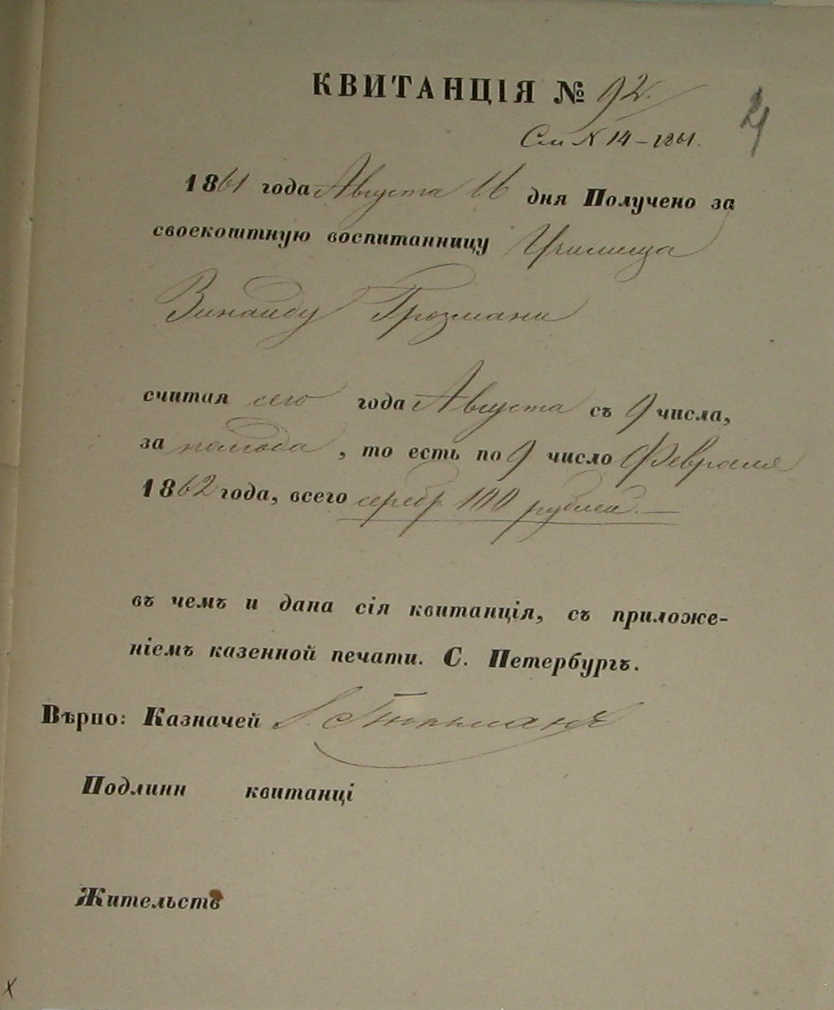 КВИТАНЦІЯ № 92.
См N 14 – 1861.
1861 года Августа 16 дня Получено за
своекоштную воспитанницу Училища
Зинаиду Грозмани
считая сего года Августа съ 9 числа,
за полгода, то есть по 9 число Февраля
1862 года, всего серебр 100 рублей. —
въ чемъ и дана сія квитанція, съ приложе-
ніемъ казенной печати. С. Петербургъ.
Вѣрно: Казначей
Подлинн квитанці
Жительств
x